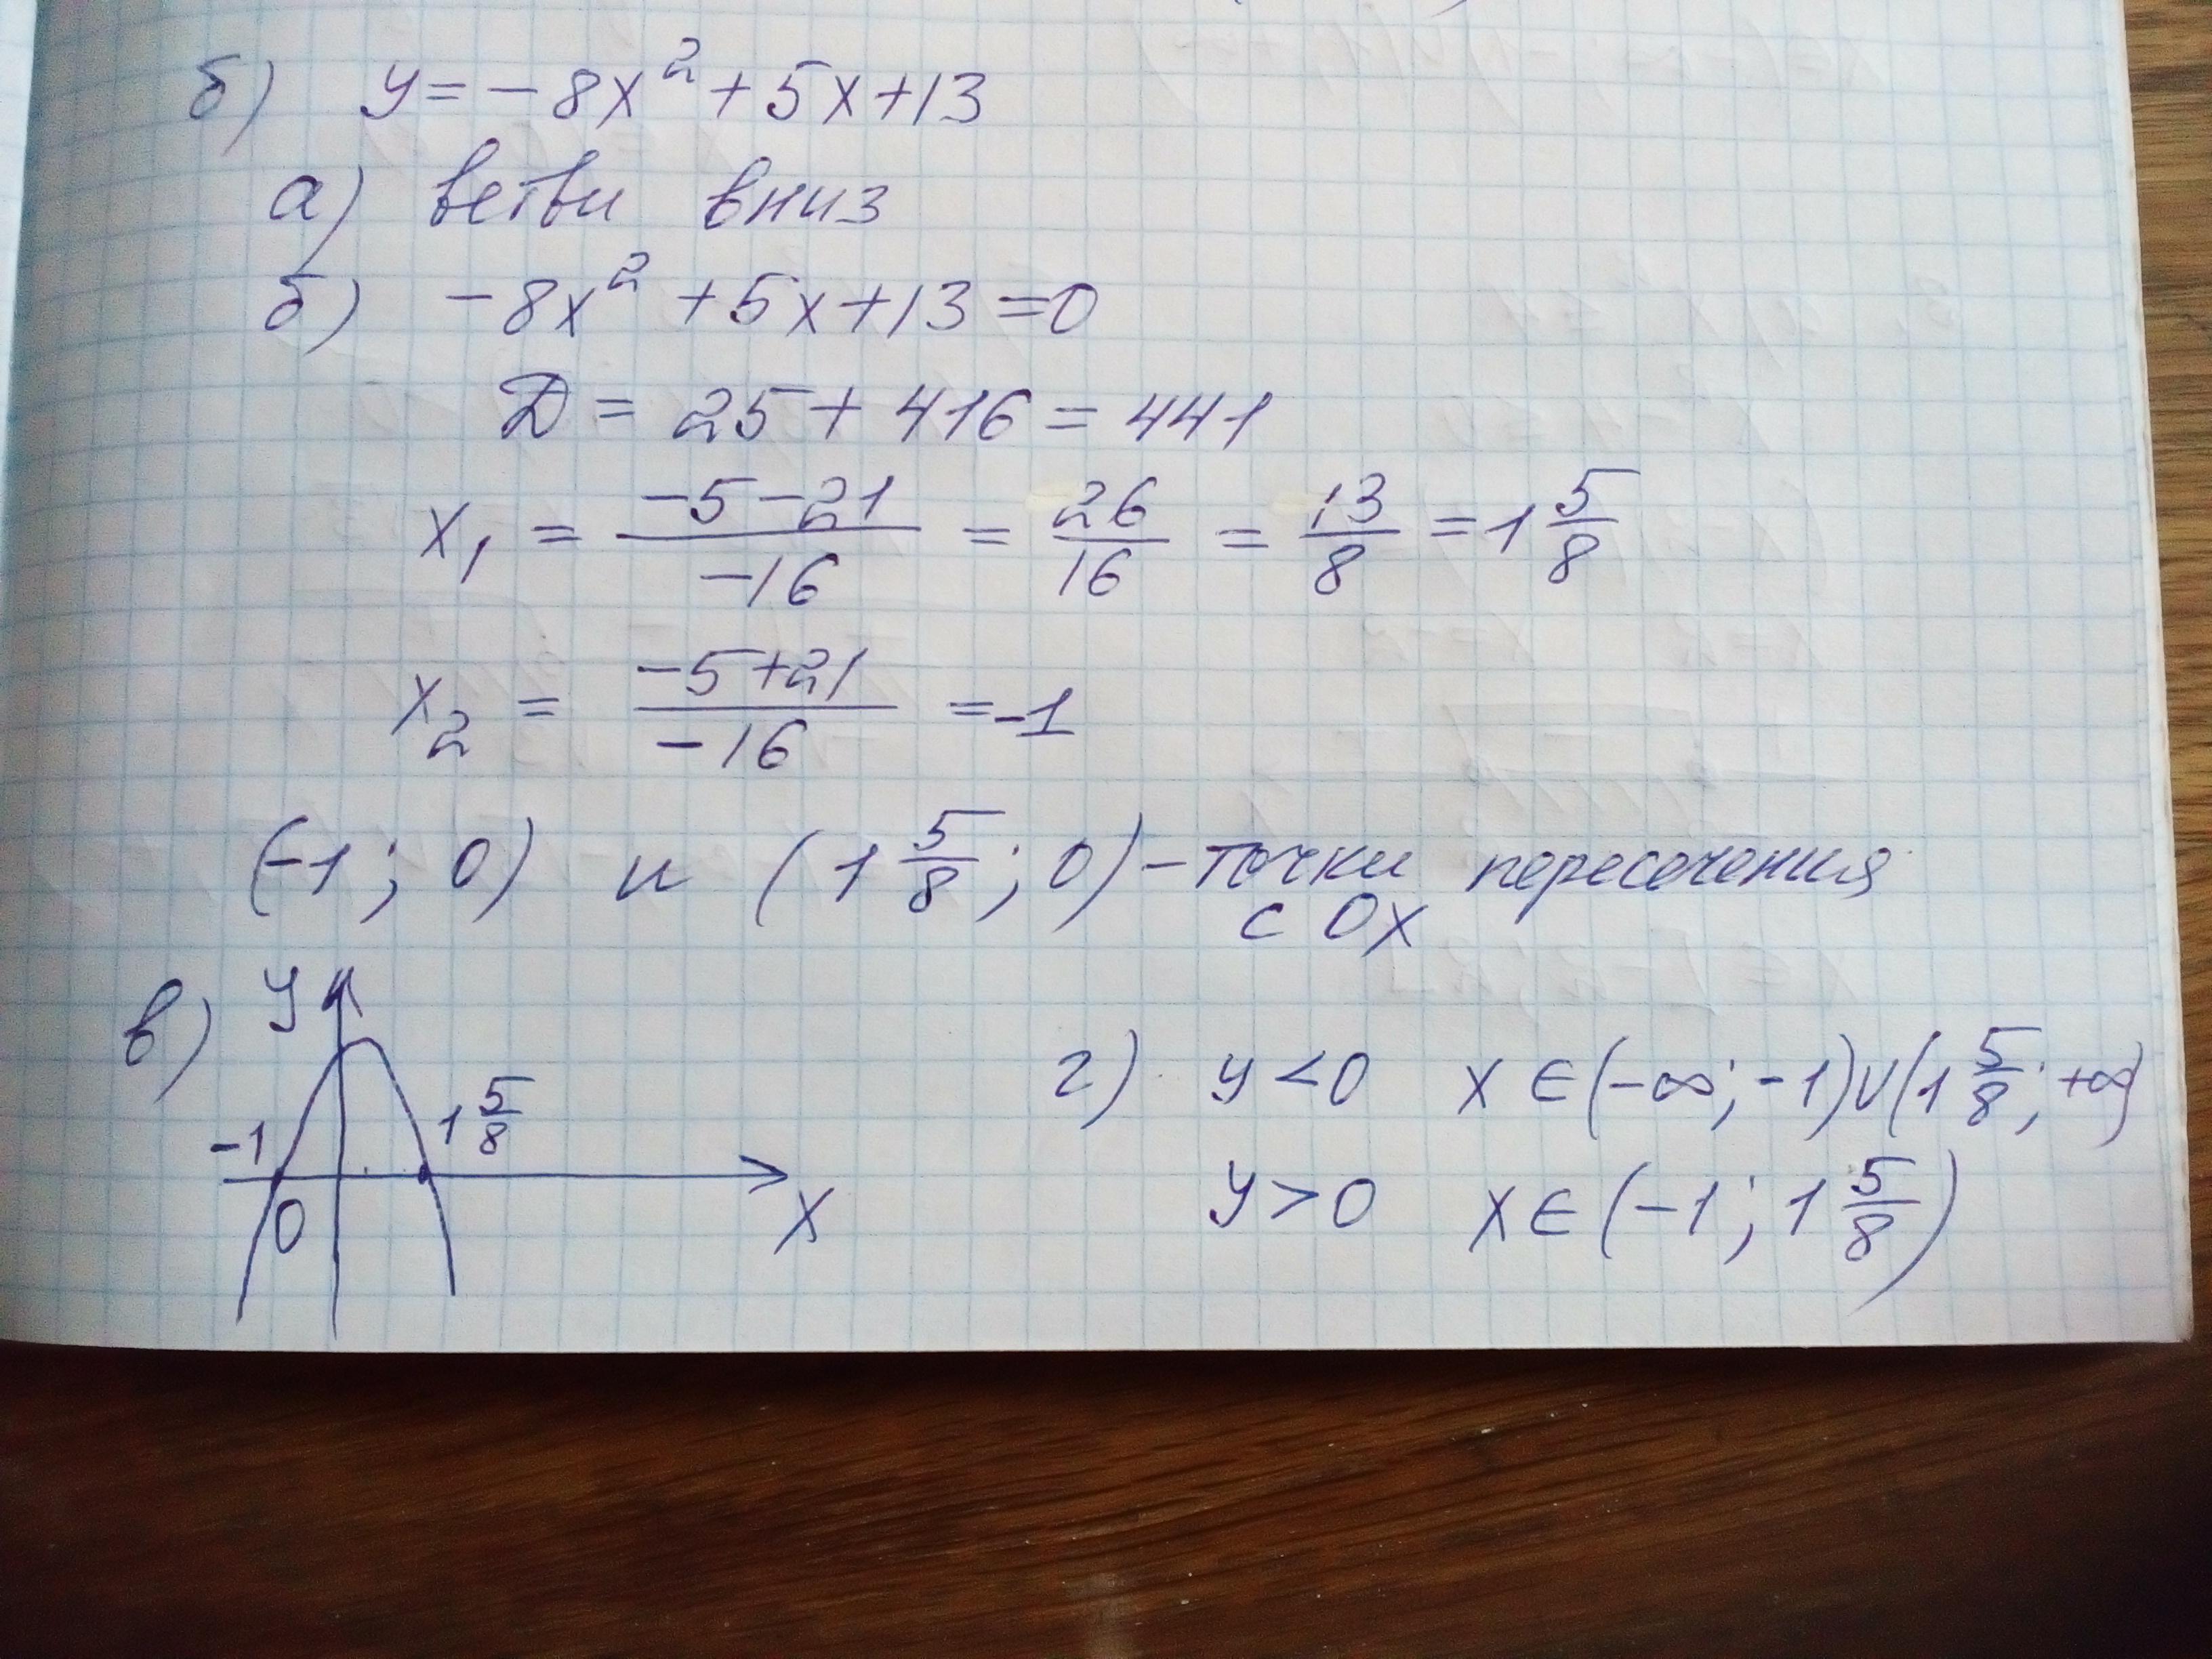 б) y = -8x² + 5x + 13
а) ветви вниз
б) -8x² + 5x + 13 = 0
Д = 25 + 416 = 441
x₁ = (-5-21)/(-16) = 26/16 = 13/8 = 1 5/8
x₂ = (-5+21)/(-16) = -1
(-1; 0) и (1 5/8; 0) - точки пересечения
с Ox
в) y -1 0 1 5/8 x
г) y < 0 x ∈ (-∞; -1) ∪ (1 5/8; +∞)
y > 0 x ∈ (-1; 1 5/8)